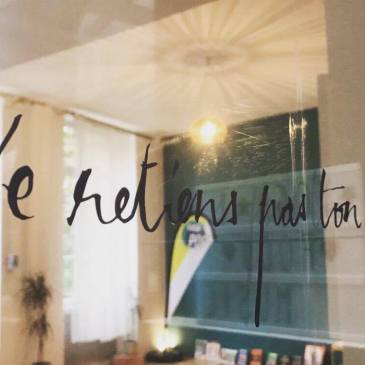 e retiens pas ton